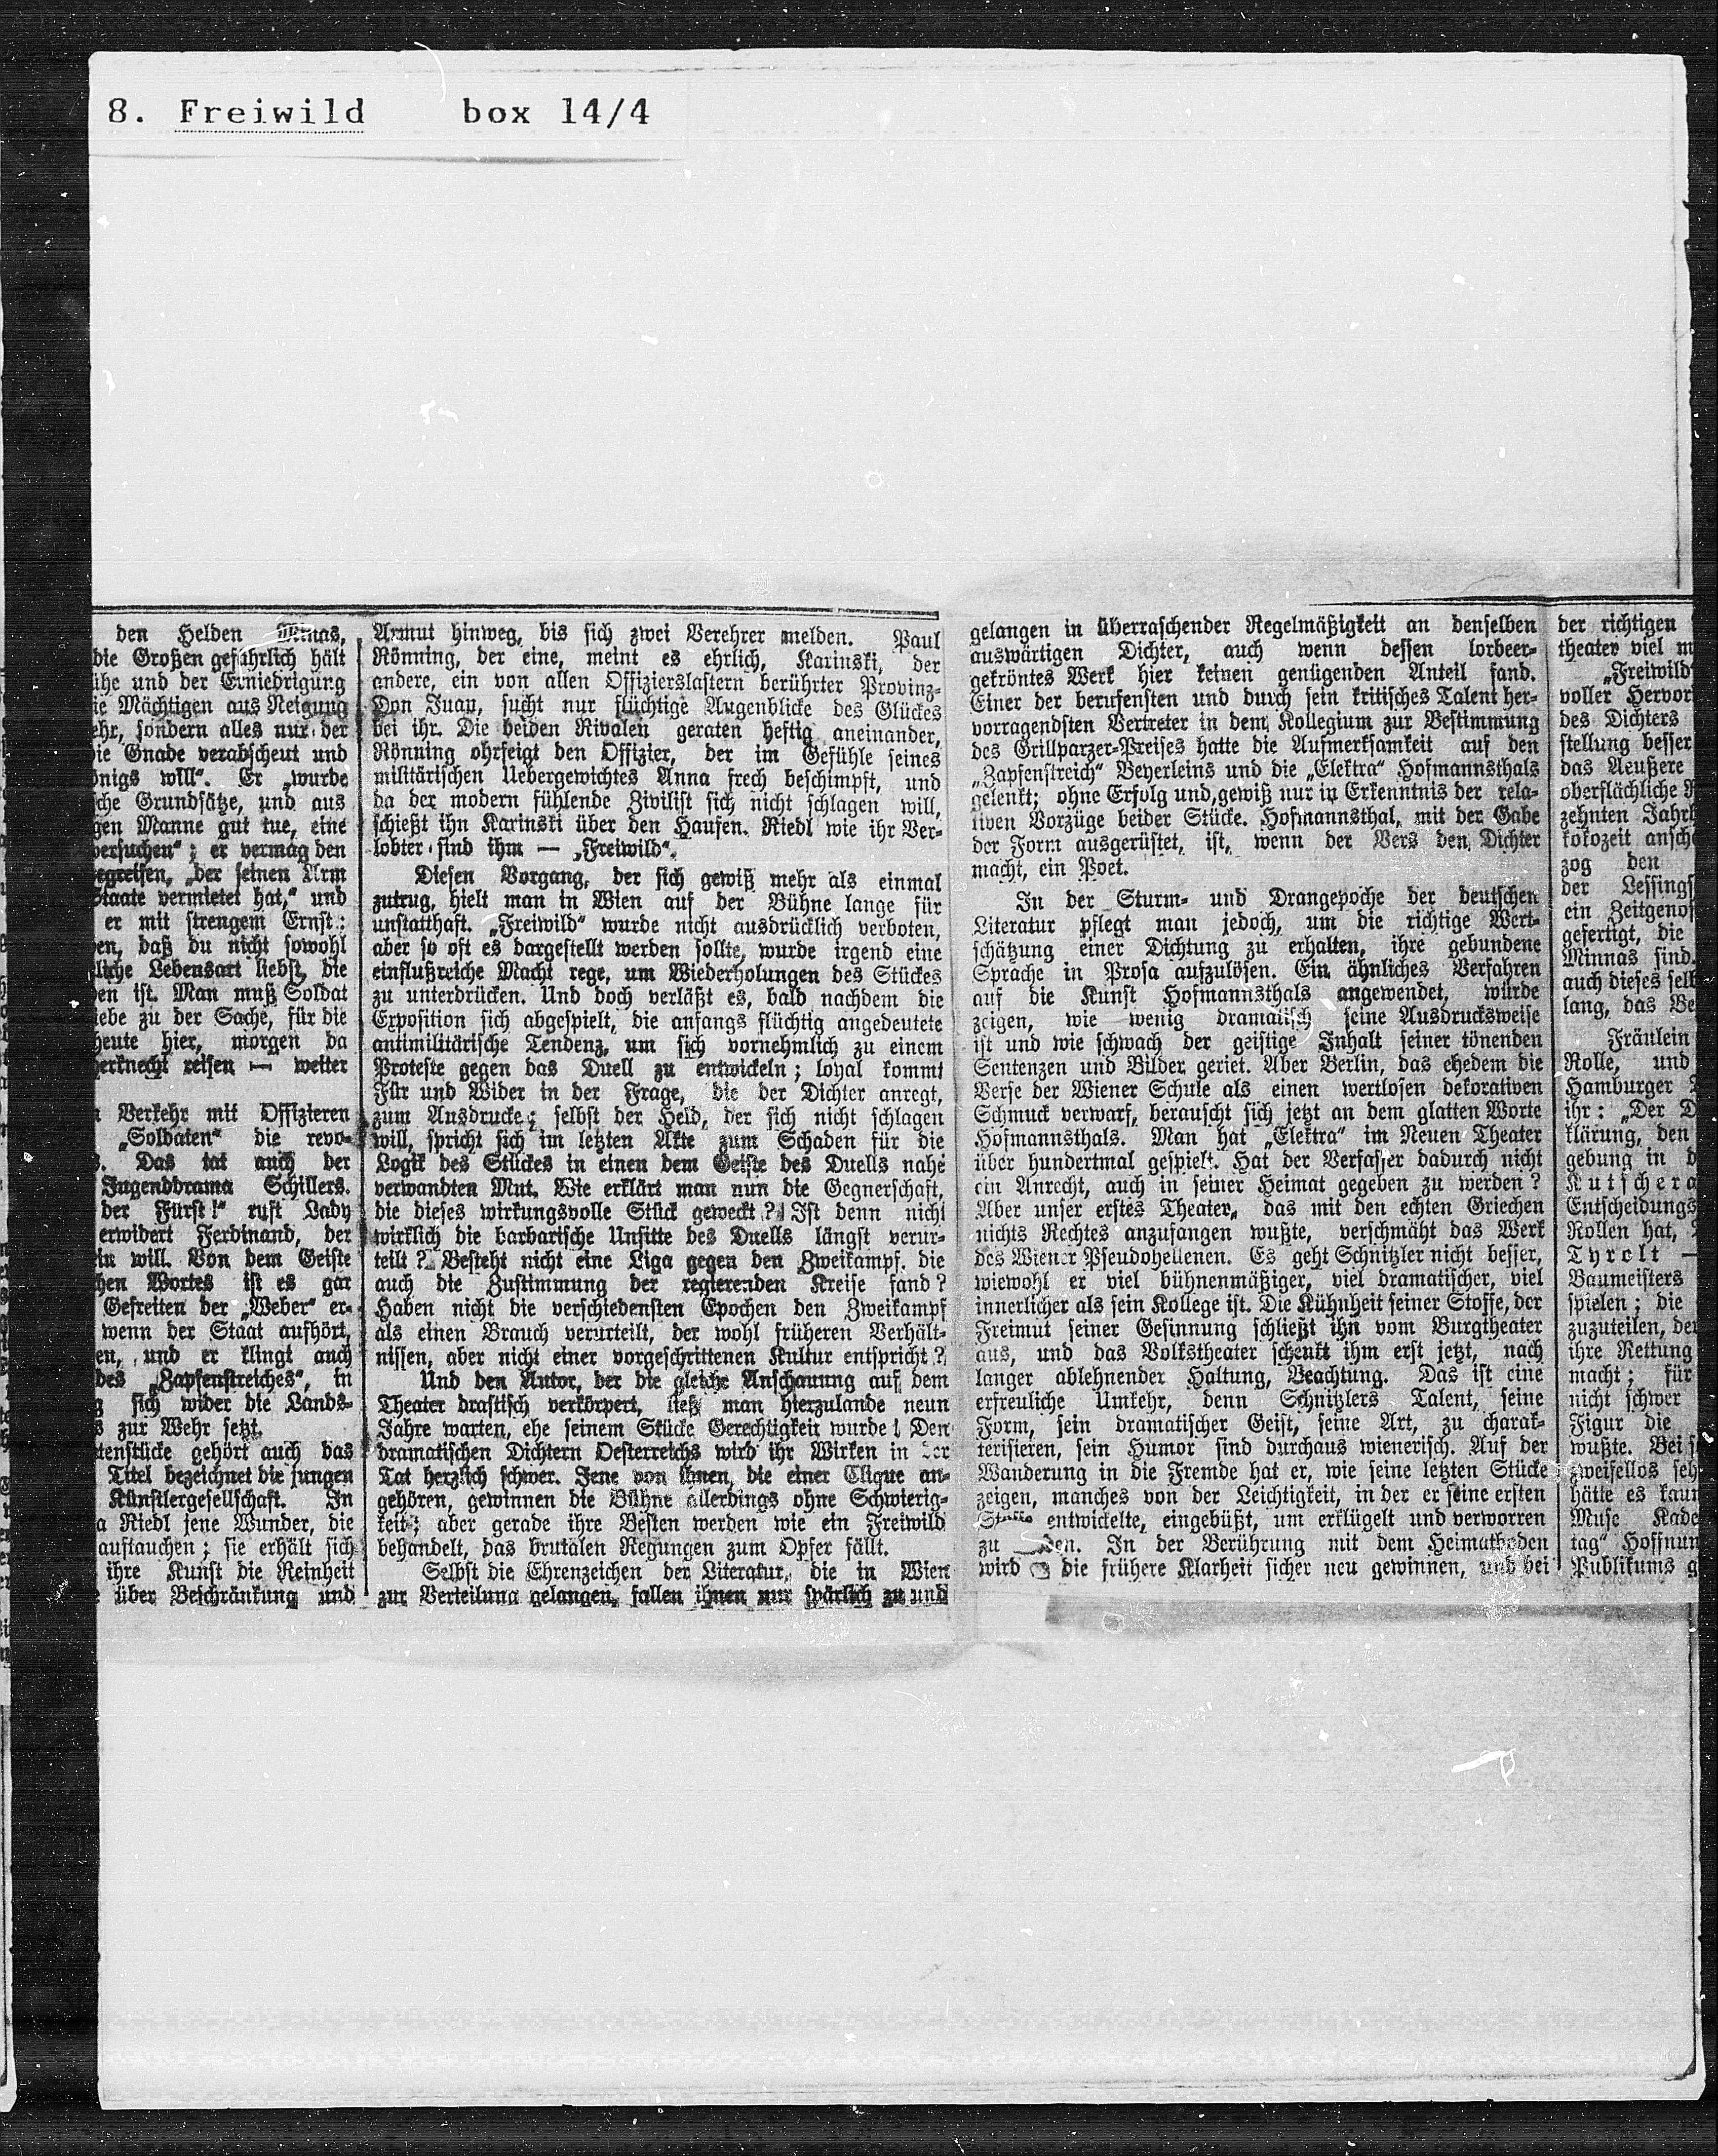 8. Freiwild box 14/4
den Helden Minnas,
die Großen gefährlich hält
ühe und der Erniedrigung
ie Mächtigen aus Neigung
ehr, sondern alles nur der
die Gnade verabscheut und
önigs will“. Er „wurde
sche Grundsätze, und aus
gen Manne gut tue, eine
versuchen“; er vermag den
egreifen, „der seinen Arm
Staate vermietet hat,“ und
er mit strengem Ernst:
en, daß du nicht sowohl
liche Lebensart liebst, die
en ist. Man muß Soldat
iebe zu der Sache, für die
heute hier, morgen da
erknecht reisen — weiter
n Verkehr mit Offizieren
„Soldaten“ die revo-
s. Das tat auch der
Jugenddrama Schillers.
der Fürst!“ ruft Lady
erwidert Ferdinand, der
in will. Von dem Geiste
chen Wortes ist es gar
Gefreiten der „Weber“ er-
wenn der Staat aufhört,
en, und er klingt auch
des „Zapfenstreiches“, in
g sich wider die Lands-
s zur Wehr setzt.
tenstücke gehört auch das
Titel bezeichnet die jungen
Künstlergesellschaft. In
a Riedl jene Wunder, die
auftauchen; sie erhält sich
ihre Kunst die Reinheit
über Beschränkung und
Armut hinweg, bis sich zwei Verehrer melden. Paul
Rönning, der eine, meint es ehrlich, Karinski, der
andere, ein von allen Offizierslastern berührter Provinz-
Don Juan, sucht nur flüchtige Augenblicke des Glückes
bei ihr. Die beiden Rivalen geraten heftig aneinander,
Rönning ohrfeigt den Offizier, der im Gefühle seines
militärischen Uebergewichtes Anna frech beschimpft, und
da der modern fühlende Zivilist sich nicht schlagen will,
schießt ihn Karinski über den Haufen. Riedl wie ihr Ver-
lobter sind ihm — „Freiwild“.
Diesen Vorgang, der sich gewiß mehr als einmal
zutrug, hielt man in Wien auf der Bühne lange für
unstatthaft. „Freiwild“ wurde nicht ausdrücklich verboten,
aber so oft es dargestellt werden sollte, wurde irgend eine
einflußreiche Macht rege, um Wiederholungen des Stückes
zu unterdrücken. Und doch verläßt es, bald nachdem die
Exposition sich abgespielt, die anfangs flüchtig angedeutete
antimilitärische Tendenz, um sich vornehmlich zu einem
Proteste gegen das Duell zu entwickeln; loyal kommt
Für und Wider in der Frage, die der Dichter anregt,
zum Ausdrucke; selbst der Held, der sich nicht schlagen
will, spricht sich im letzten Akte zum Schaden für die
Logik des Stückes in einen dem Geiste des Duells nahe
verwandten Mut. Wie erklärt man nun die Gegnerschaft,
die dieses wirkungsvolle Stück geweckt? Ist denn nicht
wirklich die barbarische Unsitte des Duells längst verur-
teilt? Besteht nicht eine Liga gegen den Zweikampf, die
auch die Zustimmung der regierenden Kreise fand?
Haben nicht die verschiedensten Epochen den Zweikampf
als einen Brauch verurteilt, der wohl früheren Verhält-
nissen, aber nicht einer vorgeschrittenen Kultur entspricht?
Und den Autor, der die gleiche Anschauung auf dem
Theater drastisch verkörpert, ließ man hierzulande neun
Jahre warten, ehe seinem Stücke Gerechtigkeit wurde! Den
dramatischen Dichtern Oesterreichs wird ihr Wirken in der
Tat herzlich schwer. Jene von ihnen, die einer Clique an-
gehören, gewinnen die Bühne allerdings ohne Schwierig-
keit; aber gerade ihre Besten werden wie ein Freiwild
behandelt, das brutalen Regungen zum Opfer fällt.
Selbst die Ehrenzeichen der Literatur, die in Wien
zur Verteilung gelangen, fallen ihnen nur spärlich zu und
gelangen in überraschender Regelmäßigkeit an denselben
auswärtigen Dichter, auch wenn dessen lorbeer-
gekröntes Werk hier keinen genügenden Anteil fand.
Einer der berufensten und durch sein kritisches Talent her-
vorragendsten Vertreter in dem Kollegium zur Bestimmung
des Grillparzer-Preises hatte die Aufmerksamkeit auf den
„Zapfenstreich“ Beyerleins und die „Elektra“ Hofmannsthals
gelenkt; ohne Erfolg und gewiß nur in Erkenntnis der rela-
tiven Vorzüge beider Stücke. Hofmannsthal, mit der Gabe
der Form ausgerüstet, ist, wenn der Vers den Dichter
macht, ein Poet.
In der Sturm- und Drangepoche der deutschen
Literatur pflegt man jedoch, um die richtige Wert-
schätzung einer Dichtung zu erhalten, ihre gebundene
Sprache in Prosa aufzulösen. Ein ähnliches Verfahren
auf die Kunst Hofmannsthals angewendet, würde
zeigen, wie wenig dramatisch seine Ausdrucksweise
ist und wie schwach der geistige Inhalt seiner tönenden
Sentenzen und Bilder geriet. Aber Berlin, das ehedem die
Verse der Wiener Schule als einen wertlosen dekorativen
Schmuck verwarf, berauscht sich jetzt an dem glatten Worte
Hofmannsthals. Man hat „Elektra“ im Neuen Theater
über hundertmal gespielt. Hat der Verfasser dadurch nicht
ein Anrecht, auch in seiner Heimat gegeben zu werden?
Aber unser erstes Theater, das mit den echten Griechen
nichts Rechtes anzufangen wußte, verschmäht das Werk
des Wiener Pseudohellenen. Es geht Schnitzler nicht besser,
wiewohl er viel bühnenmäßiger, viel dramatischer, viel
innerlicher als sein Kollege ist. Die Kühnheit seiner Stoffe, der
Freimut seiner Gesinnung schließt ihn vom Burgtheater
aus, und das Volkstheater schenkt ihm erst jetzt, nach
langer ablehnender Haltung, Beachtung. Das ist eine
erfreuliche Umkehr, denn Schnitzlers Talent, seine
Form, sein dramatischer Geist, seine Art, zu charak-
terisieren, sein Humor sind durchaus wienerisch. Auf der
Wanderung in die Fremde hat er, wie seine letzten Stücke
zeigen, manches von der Leichtigkeit, in der er seine ersten
entwickelte, eingebüßt, um erklügelt und verworren
zu den. In der Berührung mit dem Heimatboden
wird die frühere Klarheit sicher neu gewinnen, und bei
der richtigen
theater viel m
„Freiwild“
voller Hervor
des Dichters
stellung besser
das Aeußere
oberflächliche R
zehnten Jahrh
kokozeit anscha
zog den
der Lessings
ein Zeitgenos
gefertigt, die
Minnas sind.
auch dieses selb
lang, das Be
Fräulein
Rolle, und
Hamburger
ihr: „Der D
klärung, den
gebung in d
Kutschera
Entscheidungs
Rollen hat,
Tyrolt —
Baumeisters
spielen; die
zuzuteilen, der
ihre Rettung
macht; für
nicht schwer
Figur die
wußte. Bei s
zweifellos seh
hätte es kaum
Muse Kade
tag“ Hoffnun
Publikums g